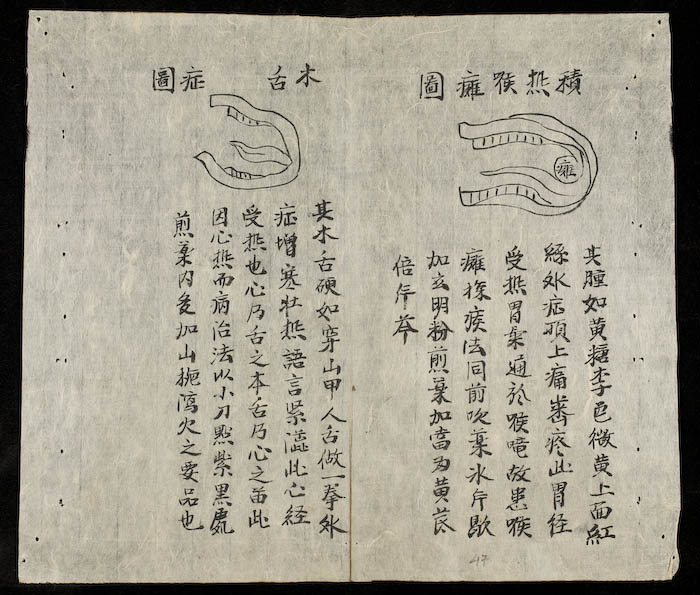 積热喉癰圖
癰
其腫如黄糖李色微黄上面紅
絲外症頭上痛疼此胃经
受热胃氣通於喉嚨故患喉
癰探痰法同前吹藥冰片
加玄明粉煎藥加當为黄芩
倍
木舌症圖
其木舌硬如穿山甲人舌做一拳外
症增寒壮热語言紧澁此心经
受热也心乃舌之本舌乃心之苗此
因心热而病治法以小刀點紫黑處
煎藥内多加山梔瀉火之要品也
47